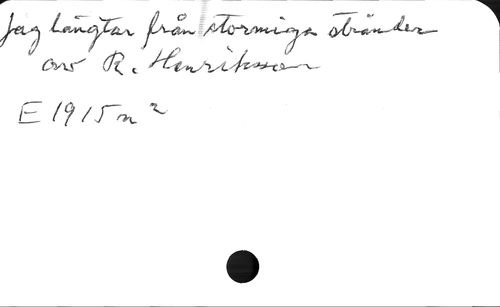 Jag längtar från stormiga stränder
av R. Henriksson
E 1915 n 2